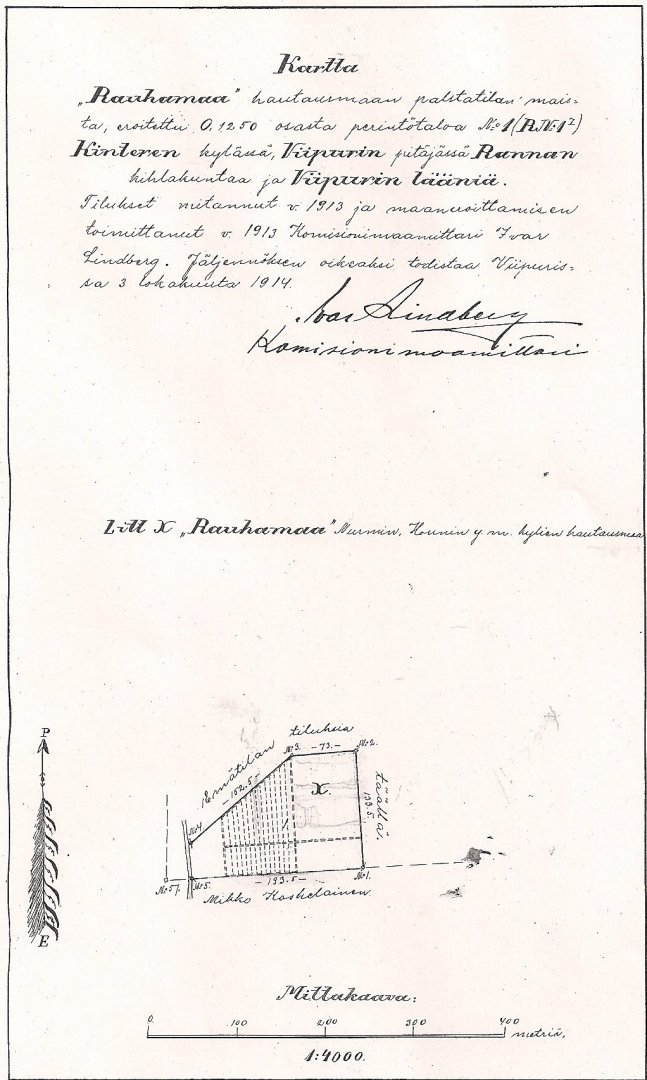 Kartta
„Rauhamaa" hautausmaan palstatilan mais-
ta, eroitettu 0,1250 osasta perintötaloa №1 (R.№1²)
Kinteren kylässä, Viipurin pitäjässä Rannan
kihlakuntaa ja Viipurin lääniä.
Tilukset mitannut v. 1913 ja maaneroittamisen
toimittanut v. 1913 Komisionimaamittari Ivar
Lindberg. Jäljennöksen oikeaksi todistaa Viipuris-
sa 3 lokakuuta 1914.
Ivar Lindberg
Komisionimaamittari
Litt X „Rauhamaa" Nurmin, Hounin y. m. kylien hautausmaa
P
E
Emätilan tiluksia
täältä
№3.
-73.-
№2.
-152.5-
X.
133.5.
№4
№57.
№5.
-193.5-
№1.
Mikko Koskelainen
Mittakaava:
0. 100 200 300 400
metriä.
1:4000.